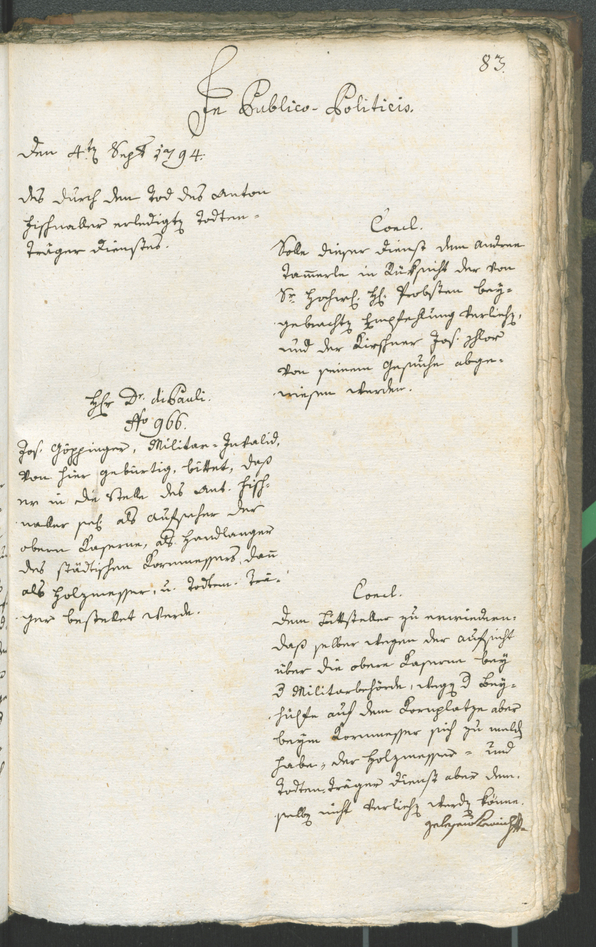 83.
In Publico-Politicis.
Den 4tn Sept 1794.
des durch den Tod des Anton
Hischnaller erledigtn Todten-
träger Dienstes.
Concl.
Solle dieser Dienst dem Andree
Tamerle in Rüksicht der von
Sr. Hochw. H. Probsten bey-
gebrachtn Empfehlung verliehn,
und der Kirschner Jos.
von seinem Gesuche abge-
wiesen werden.
Hr Dr. di Pauli.
966.
Jos. Göppinger, Militar-Invalid,
von hier gebürtig, bittet, daß
er in die Stelle des Ant. Hisch-
naller sich als Aufseher der
obern Kaserne, als Handlanger
des städtischen Kornmessers, dan
als Holzmesser, u. Todten-Trä-
ger bestellet werde.
Concl.
Dem Bittsteller zu erwiedern,
daß selber wegen der Aufsicht
über die obere Kaserne bey
d Militarbehörde, wegn d Bey-
hülfe auf dem Kornplatze aber
beym Kornmesser sich zu meldn
habe, der Holzmesser- und
Todten-Träger Dienst aber dem-
selbn nicht verliehn werdn könne.